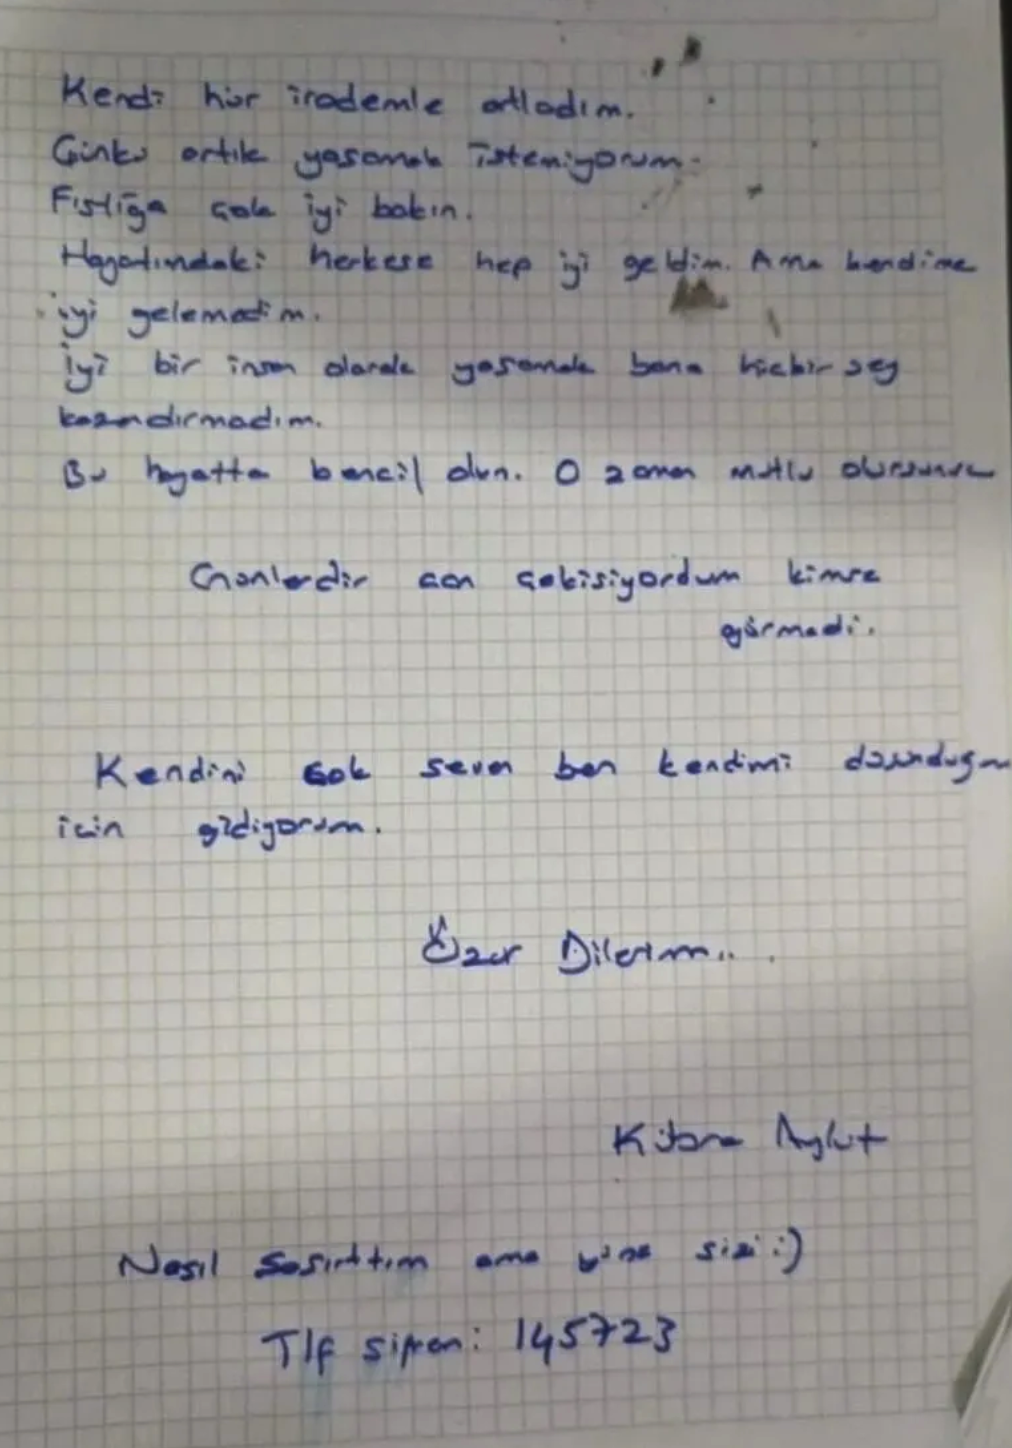 Kendi hür irademle atladım.
Çünkü artık yaşamak istemiyorum.
Fıstığa çok iyi bakın.
Hayatımdaki herkese hep iyi geldim. Ama kendime
iyi gelemedim.
İyi bir insan olarak yaşamak bana hiçbir şey
kazandırmadım.
Bu hayatta bencil olun. O zaman mutlu olursunuz
Günlerdir can çekisiyordum kimse
görmedi.
Kendini çok seven ben kendimi düşündüğüm
için gidiyorum.
Özür Dilerim...
Kübra Aykut
Nasıl şaşırttım ama yine sizi :)
Tlf şifren: 145723